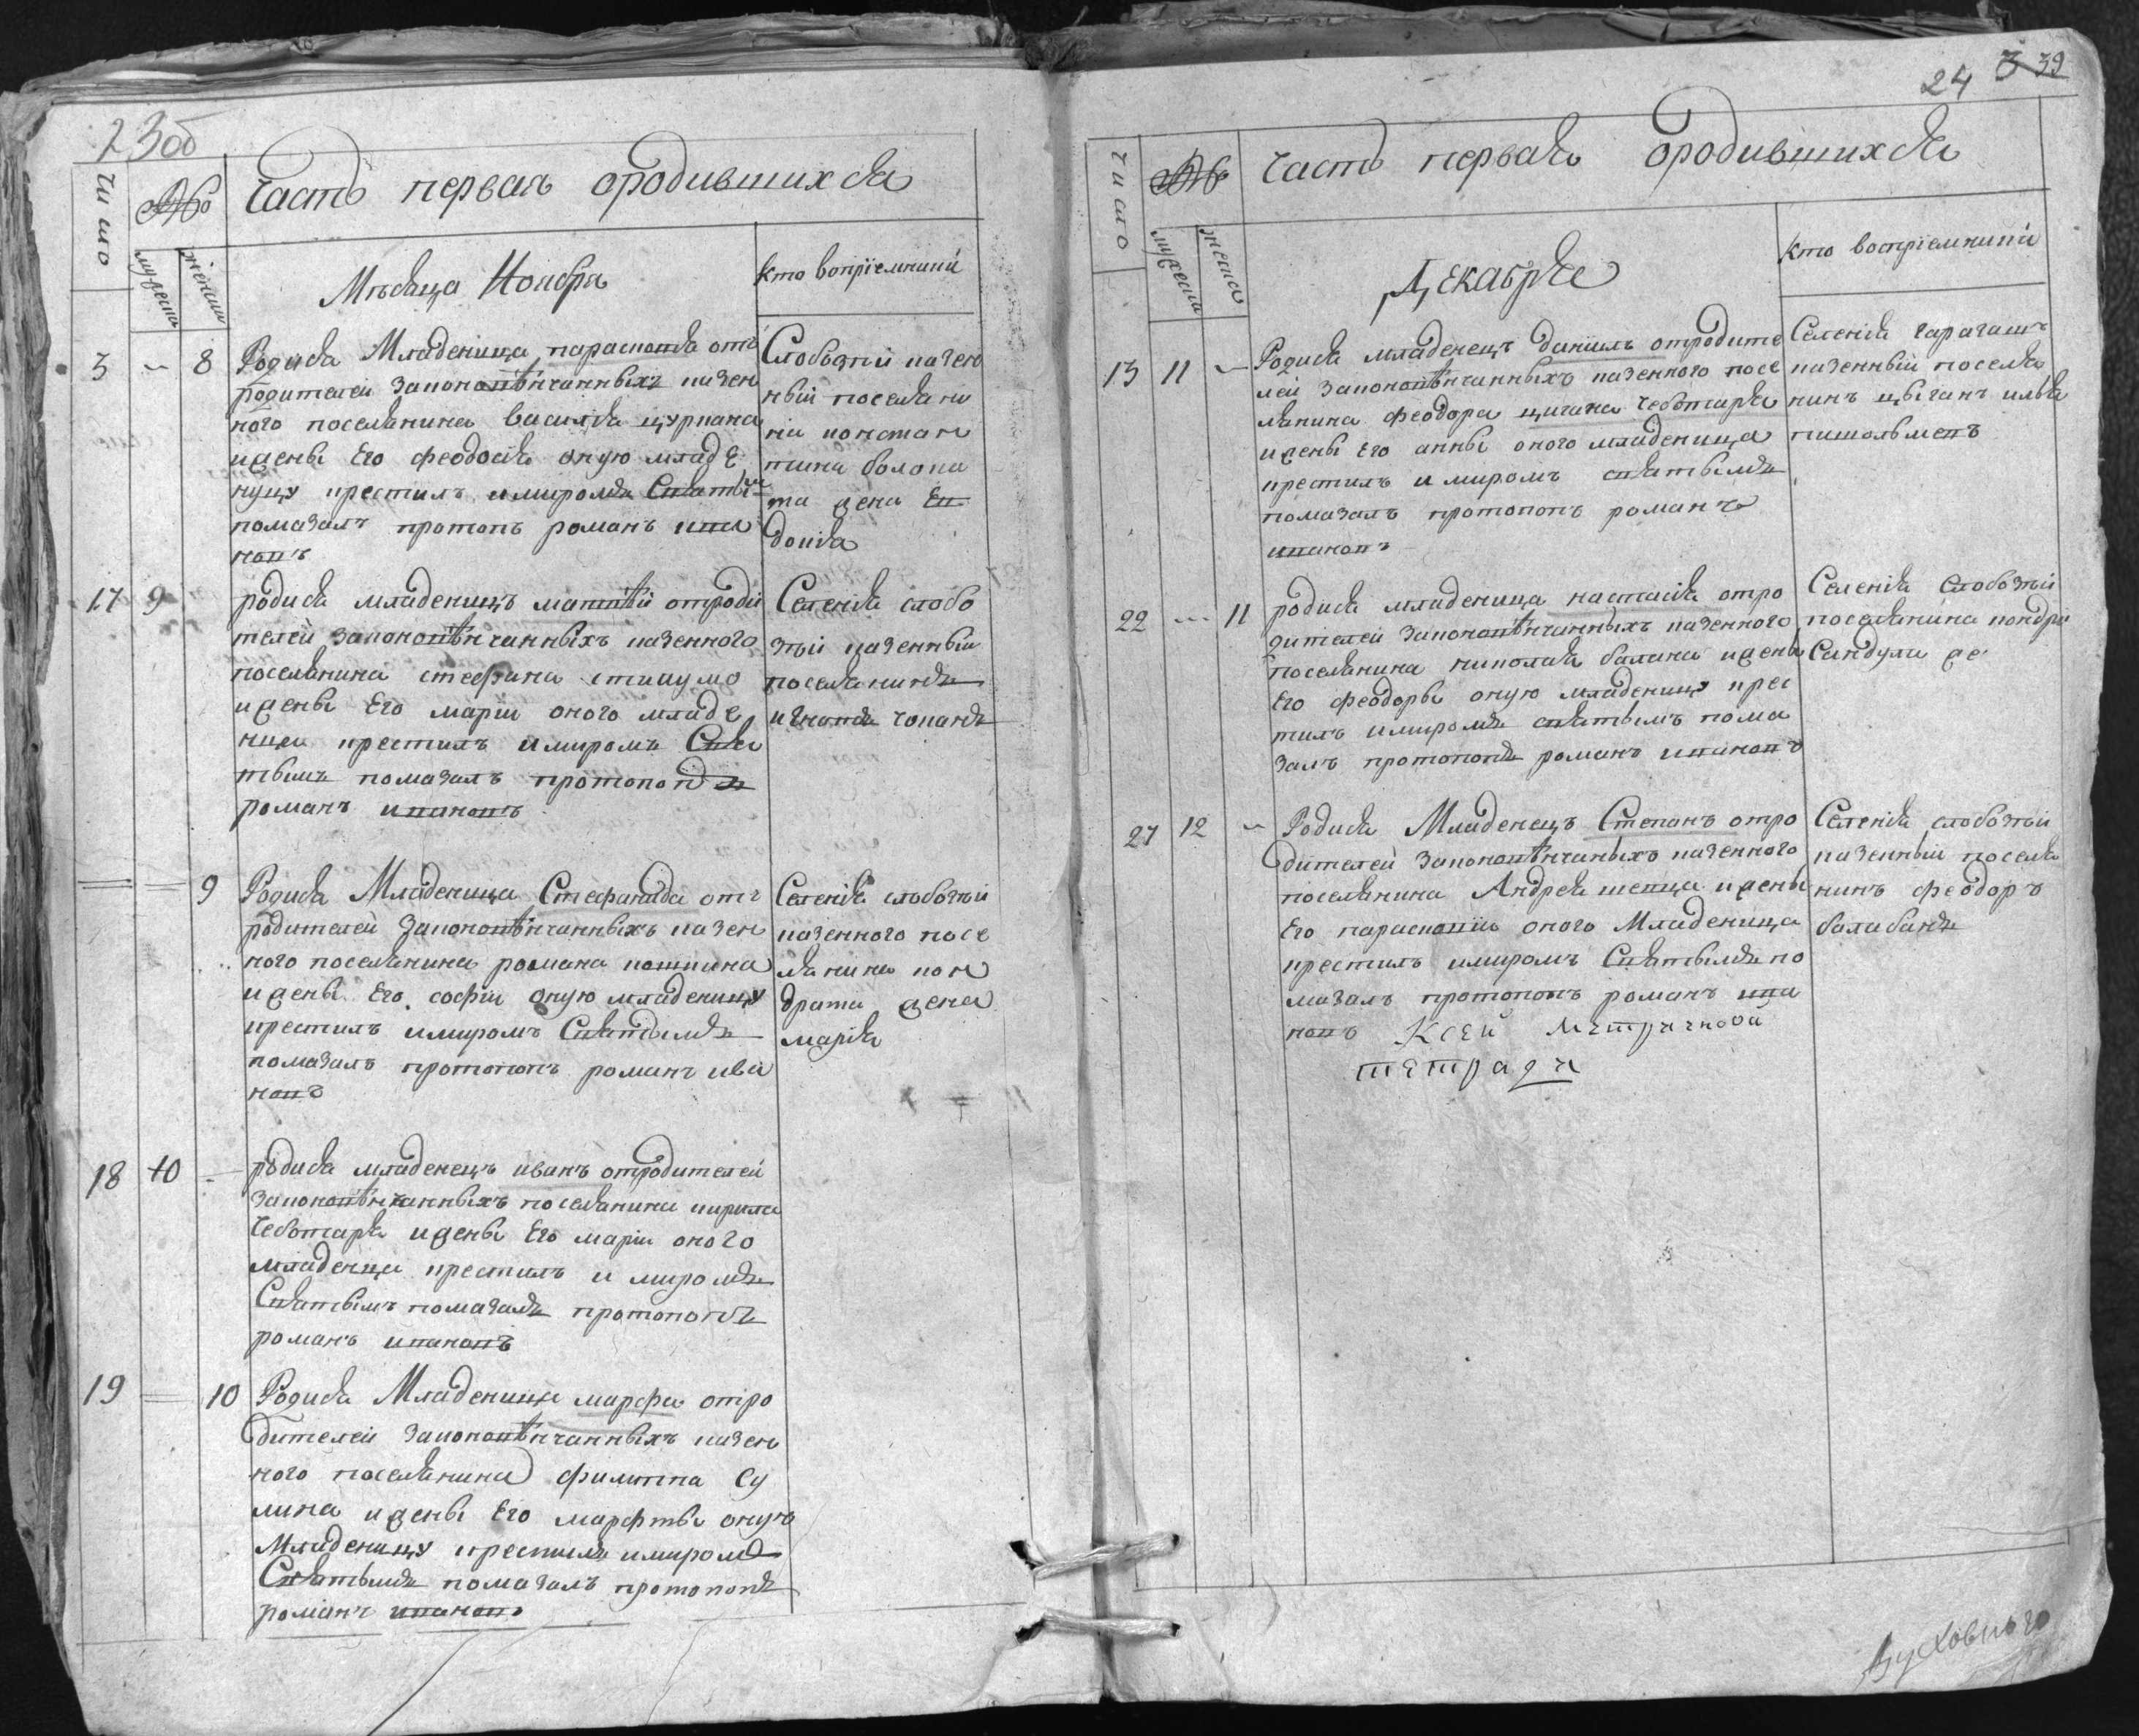 23об
Число
№
Часть первая ородившихся
мужеска
женска
Месяца Ноября
кто воприемники
3 8 Родися Младеница параскева отъ
родителей законовѣнчанныхъ казен
ного поселянина василя цуркана
и жены Его феодосiя оную младе
ницу крестилъ имиромъ Святы
помазалъ протопъ романъ ива
новъ
Слобозiи казен
ный поселяни
нiи констан
тина болока
та жена Ев
докiя
17 9 родися младеницъ матвѣй отроди
телей законовѣнчанныхъ казенного
поселянина стефана стикуло
и жены Его марiи оного младе
ница крестилъ имиромъ Свя
тымъ помазалъ протопопъ
романъ ивановъ
Селенiя слобо
зiи казенный
поселянинъ
игнатъ чобанъ
9 Родися Младеница Стефанида отъ
родителей законовѣнчанныхъ казен
ного поселянина романа
и жены Его софiи оную младеницу
крестилъ имиромъ Святымъ
помазалъ протопопъ романъ ива
новъ
Селенiя слобозiи
казенного посе
лянина кон
драта жена
марiя
18 10 родися младенецъ иванъ отродителей
законовѣнчанныхъ поселянина кирила
чеботаря и жены Его марiи оного
младенца крестилъ и миромъ
Святымъ помазалъ протопопъ
романъ ивановъ
19 10 Родися Младеница марфа отро
дителей законовѣнчанныхъ казен
ного поселянина филиппа Су
лина и жены Его марфты оную
Младеницу крестилъ имиромъ
Святымъ помазалъ протопопъ
романъ ивановъ
24 3 39
Число
№
часть первая ородившихся
мужеска
женска
Декабря
кто воспрiемники
13 11 Родися младенецъ данiилъ отродите
лей законовѣнчанныхъ казенного посе
лянина феодора цигана чеботаря
и жены Его анны оного младеница
крестилъ и миромъ святымъ
помазалъ протопопъ романъ
ивановъ
Селенiя гарагашъ
казенный поселя
нинъ цыганъ илья
22 11 родися младеница настасiя отро
дителей законовѣнчанныхъ казенного
поселянина николая балана и жены
Его феодоры оную младеницу крес
тилъ имиромъ святымъ пома
залъ протопопъ романъ ивановъ
Селенiя Слобозiи
поселянина
Сандула же
27 12 Родися Младенецъ Степанъ отро
дителей законовѣнчаныхъ казенного
поселянина Андрея шевца и жены
Его параскевiи оного Младеница
крестилъ имиромъ Святымъ по
мазалъ протопопъ романъ ива
новъ Ксей метричной
тетради
Селенiя слобозiи
казенный поселя
нинъ феодоръ
балабанъ
Духовного